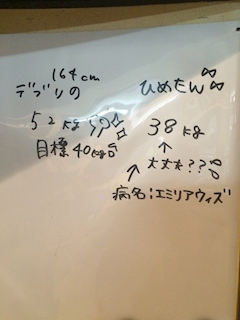 164cm
デブりの
52kg
目標40kg
ひめたん
38kg
↑
大丈夫??
↑
病名:エミリアウィズ